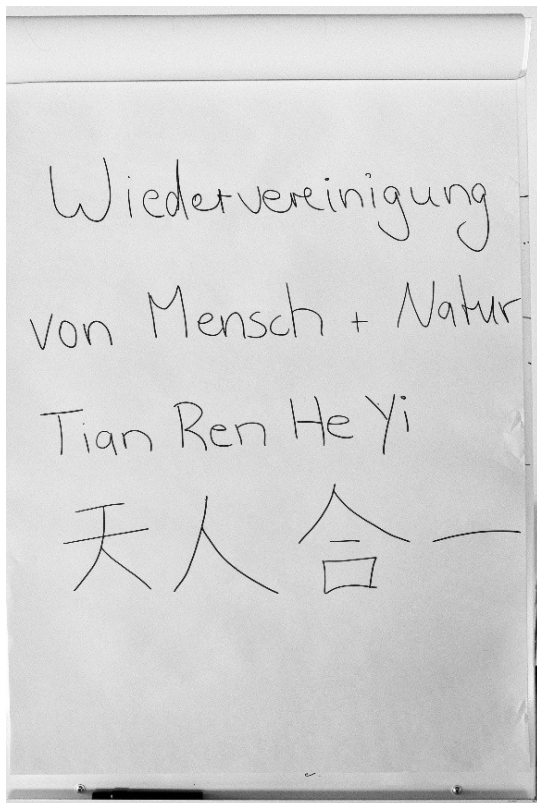 Wiedervereinigung
von Mensch + Natur
Tian Ren He Yi
天人合一